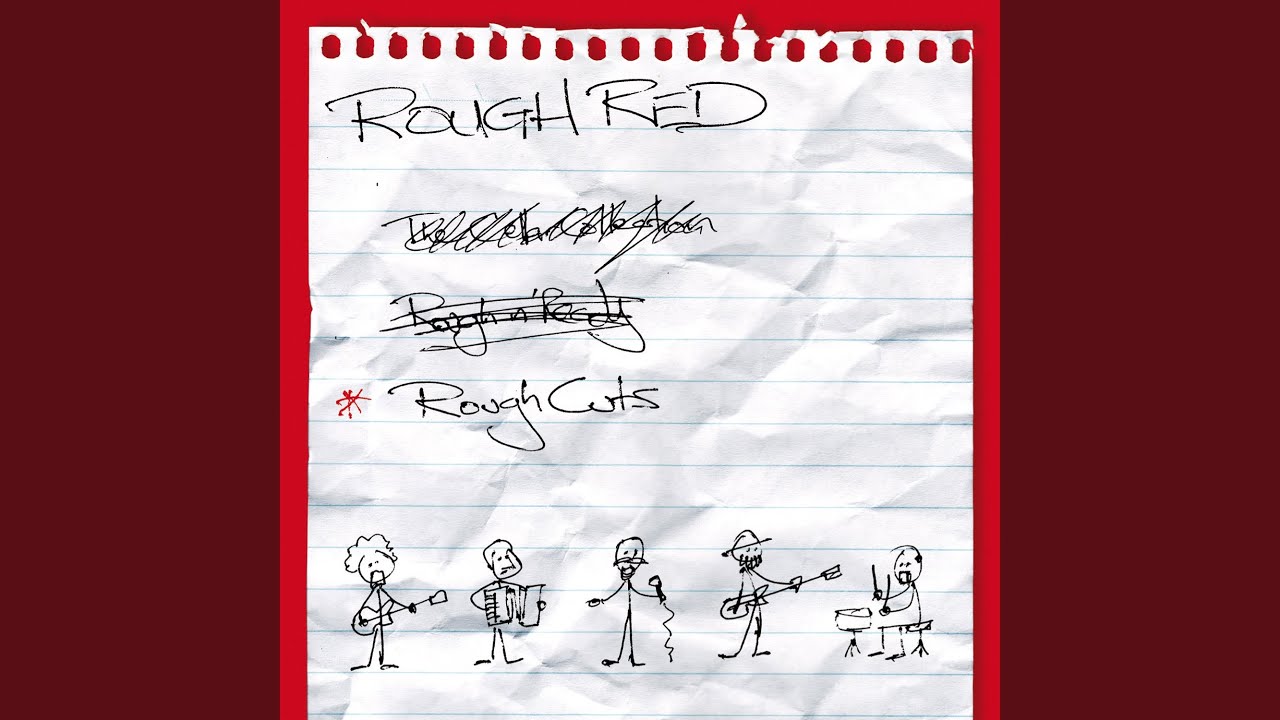 ROUGH RED
The Cellar Collection
Rough n' Ready
* Rough Cuts